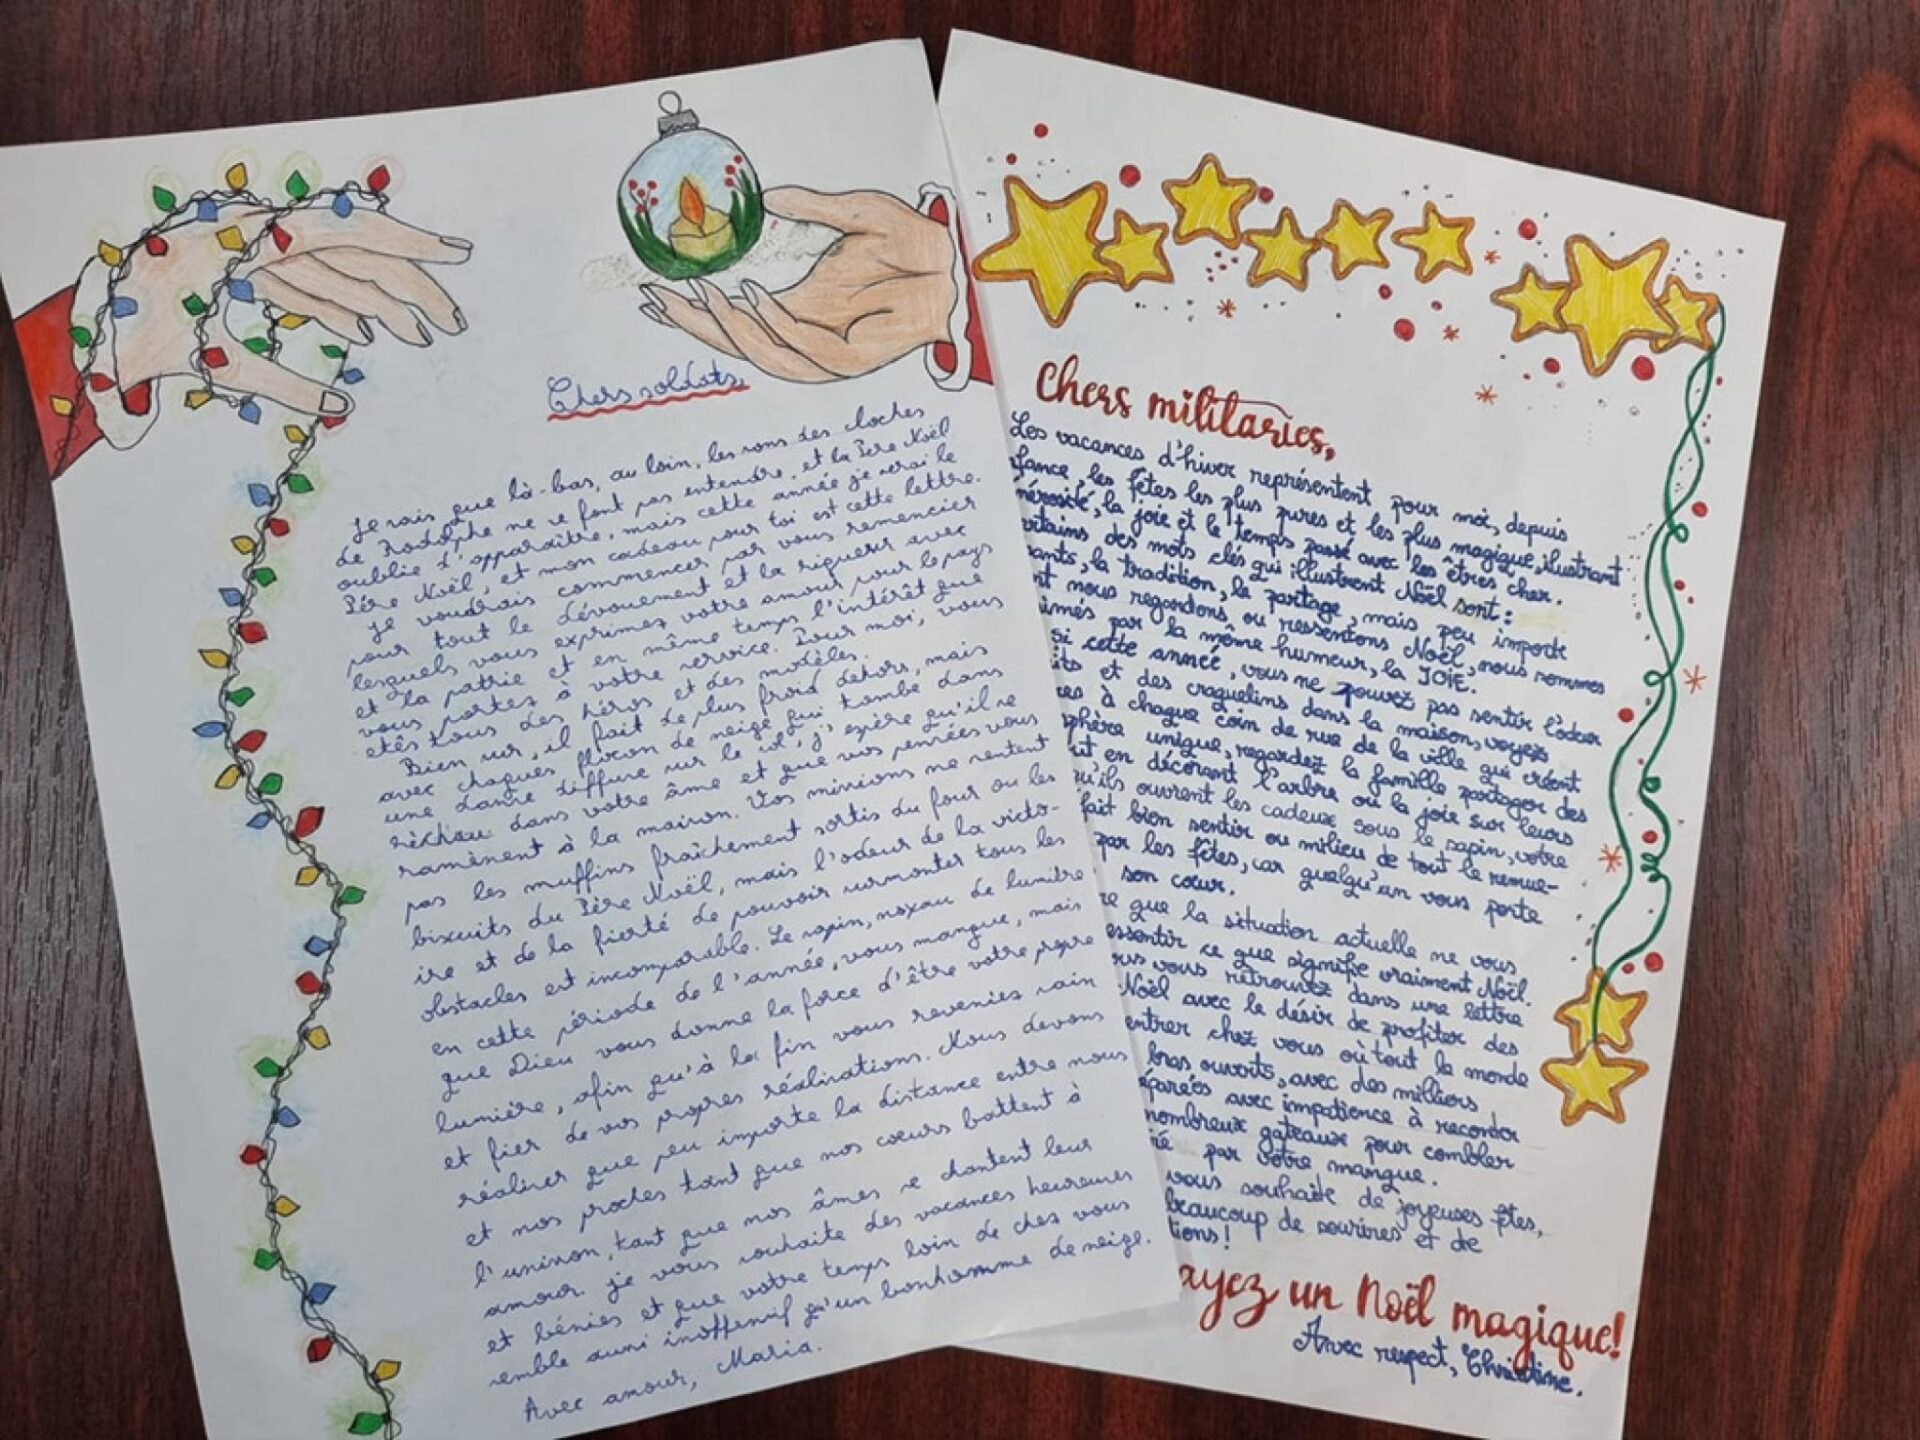 Chers soldats,
Je sais que là-bas, au loin, les sons des cloches
de Rodolphe ne se font pas entendre, et la Père Noël
oublie d'apparaître, mais cette année je serai le
Père Noël, et mon cadeau pour toi est cette lettre.
Je voudrais commencer par vous remencier
pour tout le dévouement et la rigueur avec
lesquels vous exprimez votre amour pour le pays
et la patrie et en même temps l'intérêt que
vous portez à votre service. Pour moi, vous
etês tous des héros et des modèles.
Bien sur, il fait de plus froid dehors, mais
avec chaques flocon de neige qui tombe dans
une danse diffuse sur le sol, j'espère qu'il se
rèchau dans votre âme et que vos pensées vous
ramènent à la maison. Vos missions ne sentent
pas les muffins fraîchement sortis du four ou les
biscuits du Père Noël, mais l'odeur de la victo-
ire et de la fierté de pouvoir surmonter tous les
obstacles est incomparable. Le sapin, noyau de lumière
en cette période de l'année, vous manque, mais
que Dieu vous donne la force d'être votre propre
lumière, afin qu'à la fin vous reveniez sain
et fier de vos propres réalisations. Nous devons
réaliser que peu importe la distance entre nous
et nos proches tant que nos cœurs battent à
l'unisson, tant que nos âmes se chantent leur
amour. Je vous souhaite des vacances heureuses
et bénies et que votre temps loin de chez vous
semble aussi inoffensif qu'un bonhomme de neige.
Avec amour, Maria.
Chers militaries,
Les vacances d'hiver représentent pour moi, depuis
fance, les fêtes les plus pures et les plus magique, illustrant
nérosité, la joie et le temps passé avec les êtres cher.
ertains des mots clés qui illustrent Noël sont:
sants, la tradition, le partage, mais peu importe
nt nous regardons, ou ressentons Noël, nous sommes
imés par la même humeur, la JOIE.
si cette année, vous ne pouvez pas sentir l'odeur
its et des craquelins dans la maison, voyez
res à chaque coin de rue de la ville qui créent
sphère unique, regardez la famille partager des
ut en décorant l'arbre ou la joie sur leurs
qu'ils ouvrent les cadeux sous le sapin, votre
fait bien sentir au milieu de tout le remue-
par les fêtes, car quelqu'un vous porte
son cœur.
re que la situation actuelle ne vous
essentir ce que signifie vraiment Noël.
ous vous retrouvez dans une lettre
Noël avec le désir de profiter des
entrer chez vous où tout le monde
bras ouverts, avec des milliers
éparées avec impatience à raconter
nombreux gateaux pour combler
ié par votre manque.
vous souhaite de joyeuses fêtes,
beaucoup de sourires et de
tions!
ayez un Noël magique!
Avec respect, Christine.